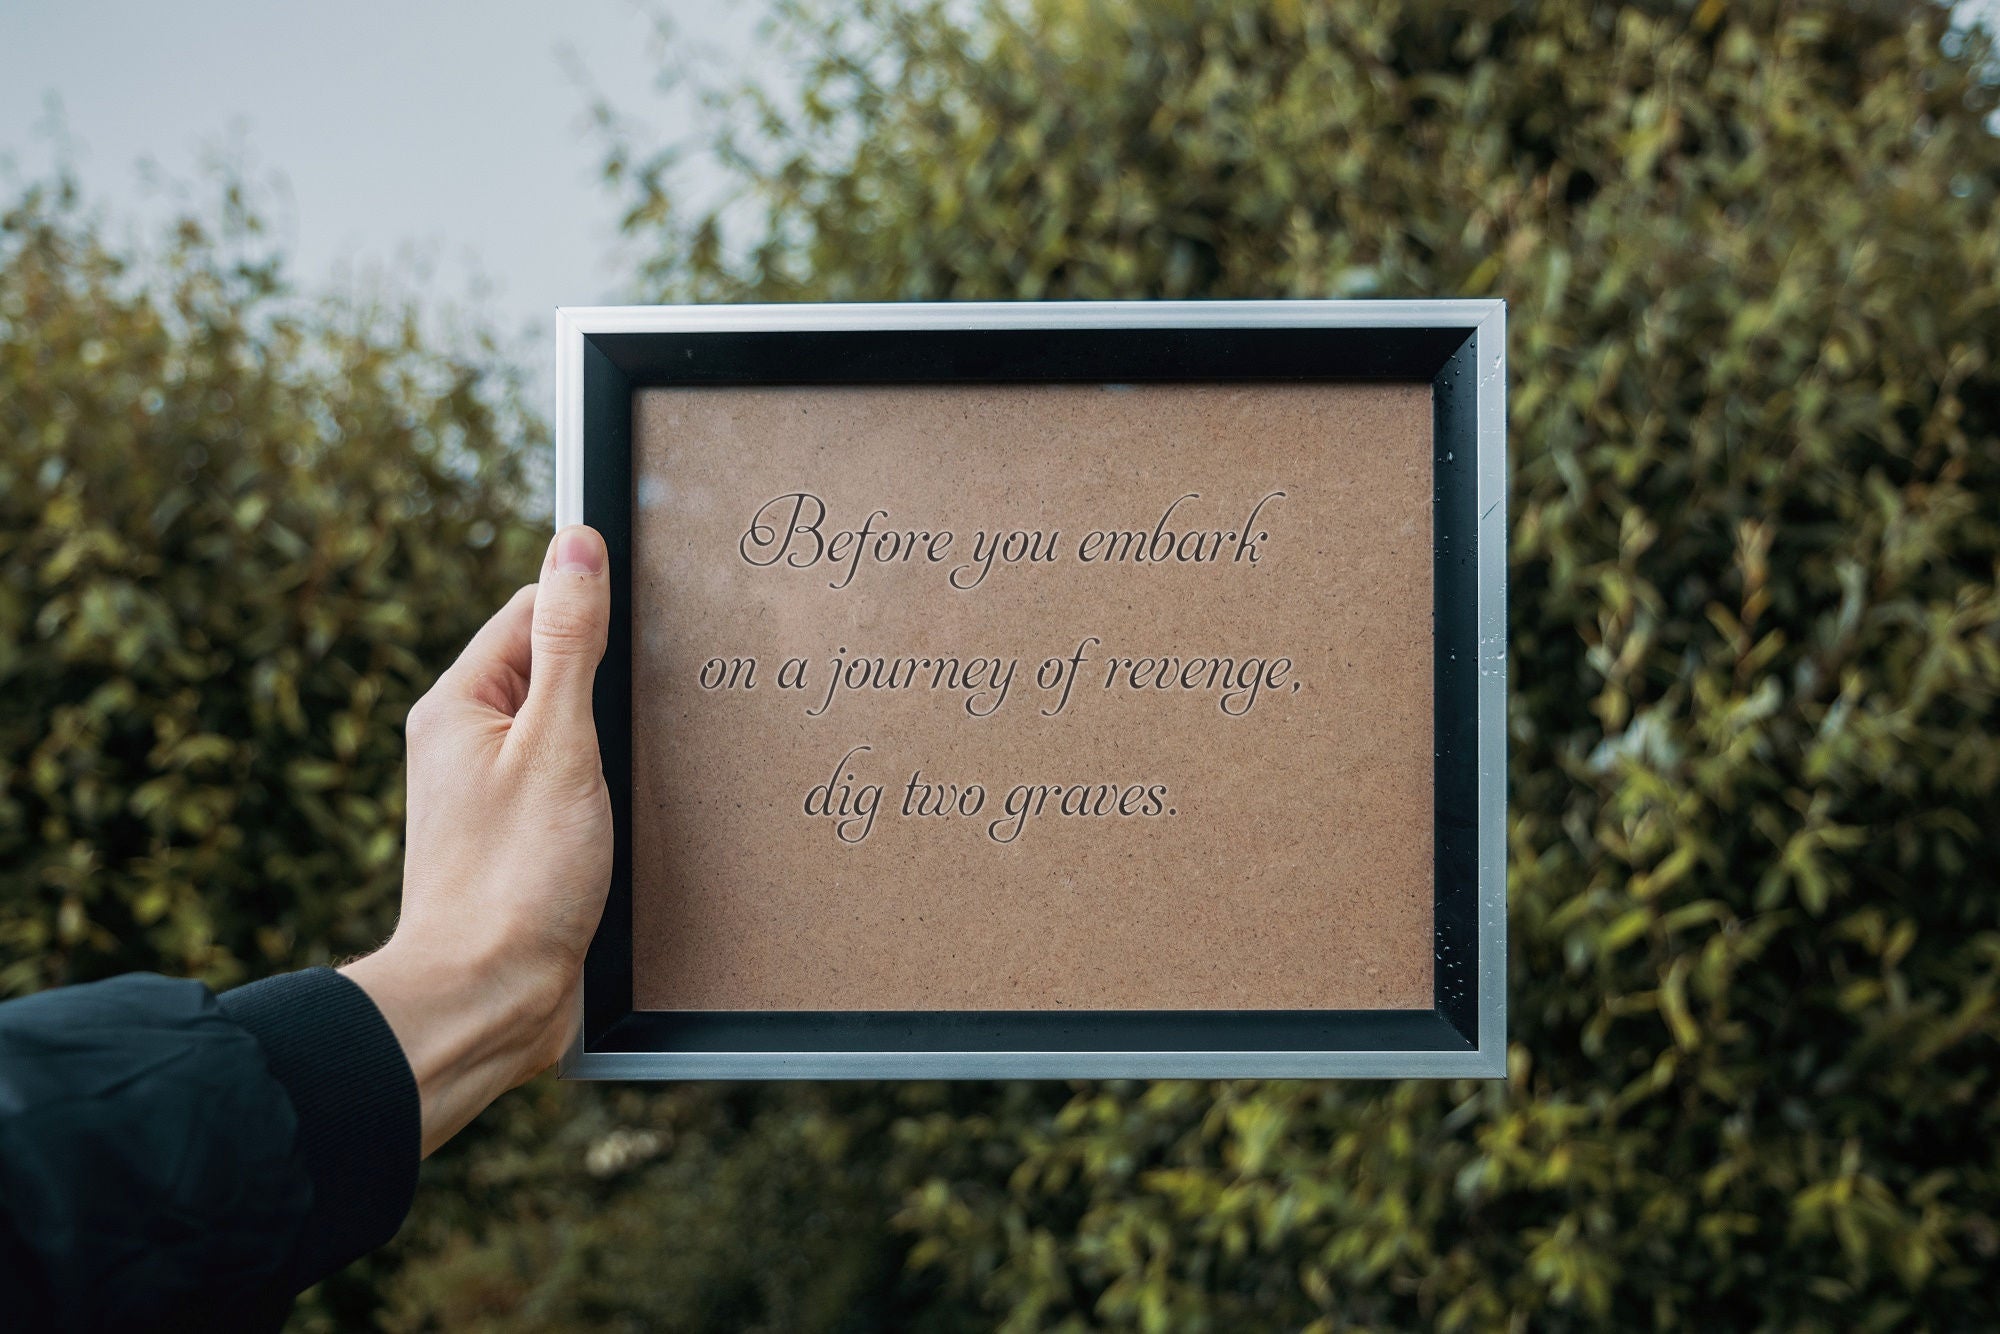 Before you embark
on a journey of revenge,
dig two graves.